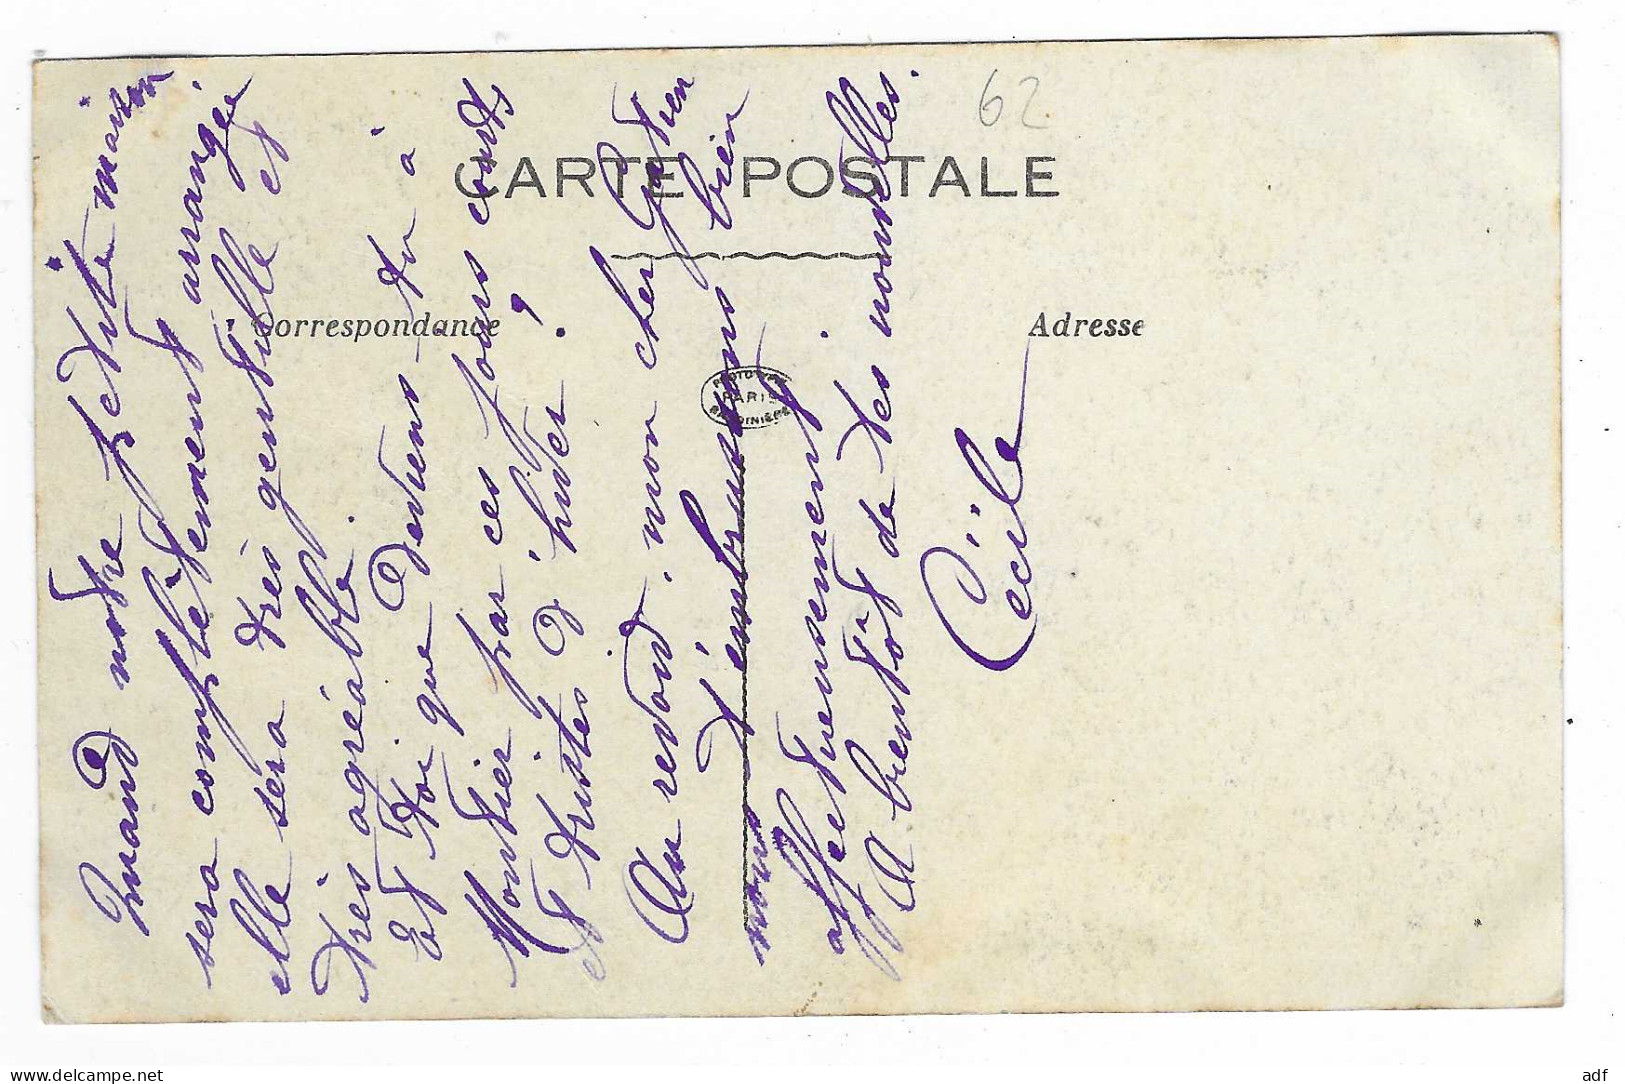 62
CARTE POSTALE
Correspondance
Adresse
PHOTOTYPIE
PARIS
BAUDINIÈRE
Quand notre petite maison
sera complètement arrangée
elle sera très gentille et
très agréable.
Et toi que deviens-tu à
Montier par ces jours courts
et tristes d'hiver?
Au revoir, mon cher Gatien
t'embrassons bien
nous
affectueusement
A bientôt de tes nouvelles.
Cécile
delcampe.net
adf